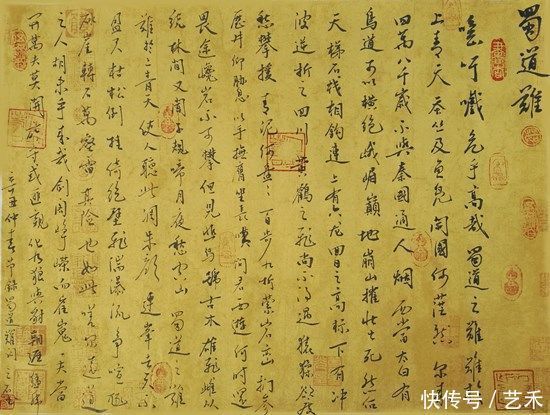 蜀道難
噫吁嚱危乎高哉蜀道之難難於
上青天蚕丛及魚凫開國何茫然尔来
四萬八千歲不與秦國通人烟西當太白有
鳥道可以横绝峨嵋巅地崩山摧壮士死然后
天梯石栈相钩連上有六龙回日之高标下有冲
波逆折之回川黄鶴之飛尚不得過猿猱欲度
愁攀援青泥何盘盘百步九折萦岩峦扪参
歷井仰胁息以手撫膺坐長嘆问君西遊何时还
畏途巉岩不可攀但見悲鳥號古木雄飛雌从
绕林间又闻子规啼月夜愁空山蜀道之難
難於上青天使人聽此凋朱顔連峯去天不
盈尺枯松倒挂倚绝壁飛湍瀑流争喧豗
砯崖轉石萬壑雷其險也如此嗟尔遠道
之人胡為乎来哉剑阁峥嵘而崔嵬一夫當
関萬夫莫開所守或匪親化为狼與豺朝避
辛丑仲春节錄蜀道難
快传号 / 艺禾